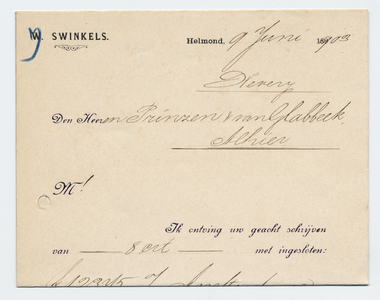 W. SWINKELS.
Helmond, 9 Juni 1903
Den Heeren Prinzen & van Glabbeek.
Alhier
M!
Ik ontving uw geacht schrijven
van — 8 ort — met ingesloten: